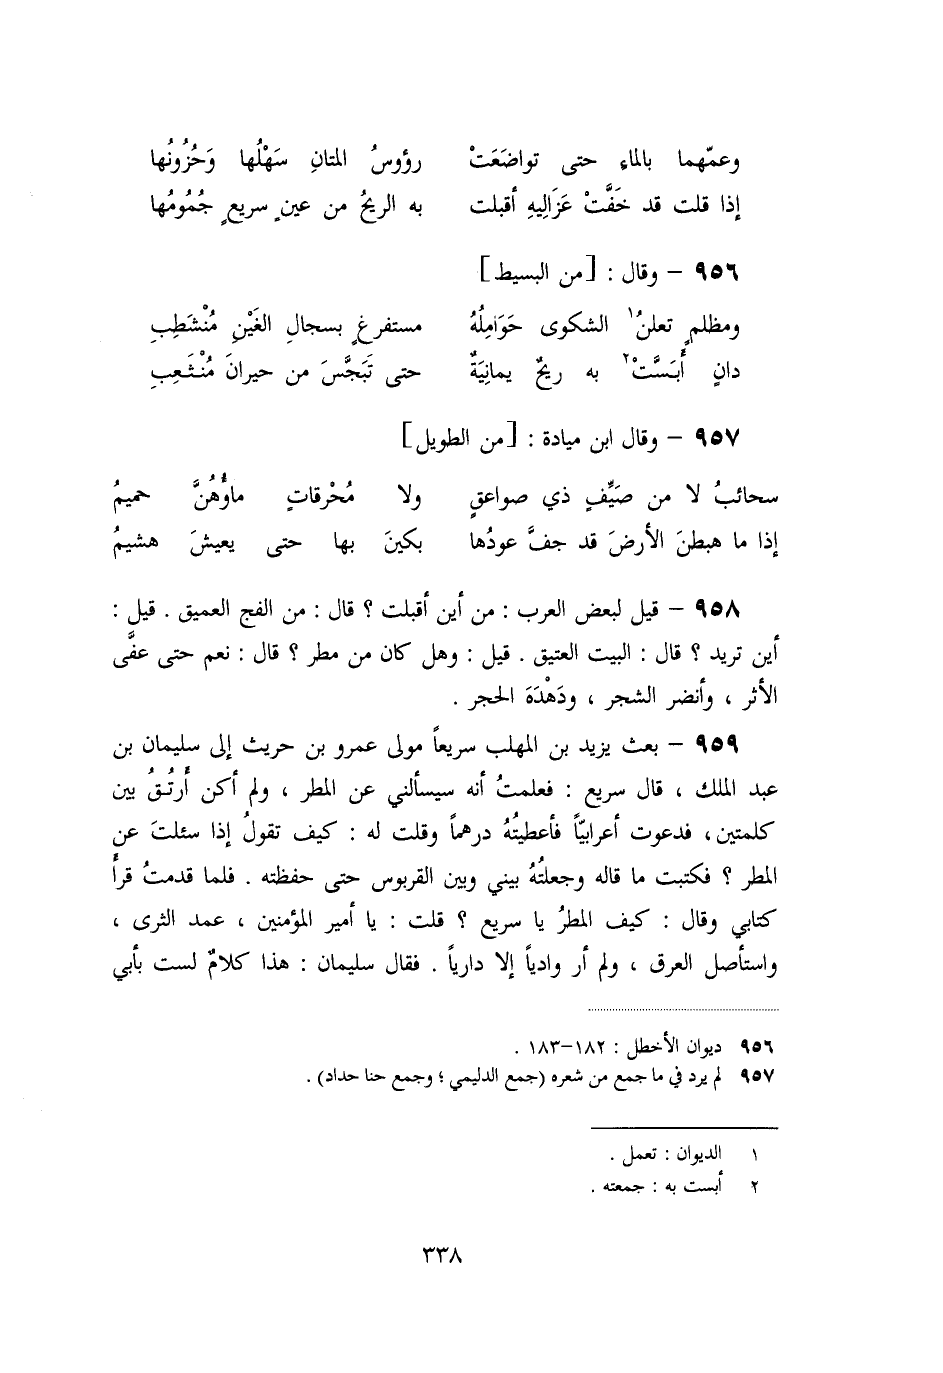 وعمّهما بالماءِ حتى تواضَعَتْ رؤوسُ المتانِ سَهْلُها وَحُزُونُها
إذا قلت قد خَفَّتْ عَزَاليهِ أقبلت به الريحُ من عينٍ سريعٍ جُمُومُها
٩٥٦ – وقال : [من البسيط]
ومظلمٍ تعلنُ١ الشكوى حَوَامِلُهُ مستفرغٍ بسجالِ الغَيْنِ مُنْشَطِبِ
دانٍ أَبَسَّتْ٢ به ريحٌ يمانِيَةٌ حتى تَبَجَّسَ من حيرانَ مُنْثَعِبِ
٩٥٧ – وقال ابن ميادة : [من الطويل]
سحائبُ لا من صَيِّفٍ ذي صواعقٍ ولا مُحْرقاتٍ ماؤُهُنَّ حميمُ
إذا ما هبطنَ الأرضَ قد جفَّ عودُها بكينَ بها حتى يعيشَ هشيمُ
٩٥٨ – قيل لبعض العرب : من أين أقبلت ؟ قال : من الفج العميق . قيل :
أين تريد ؟ قال : البيت العتيق . قيل : وهل كان من مطر ؟ قال : نعم حتى عفَّى
الأثر ، وأنضر الشجر ، ودَهْدَهَ الحجر .
٩٥٩ – بعث يزيد بن المهلب سريعاً مولى عمرو بن حريث إلى سليمان بن
عبد الملك ، قال سريع : فعلمتُ أنه سيسألني عن المطر ، ولم أكن أَرتُـقُ بين
كلمتين، فدعوت أعرابيّاً فأعطيتُهُ درهماً وقلت له : كيف تقولُ إذا سئلتَ عن
المطر ؟ فكتبت ما قاله وجعلتُهُ بيني وبين القربوس حتى حفظته . فلما قدمتُ قرأَ
كتابي وقال : كيف المطرُ يا سريع ؟ قلت : يا أمير المؤمنين ، عمد الثرى ،
واستأصل العرق ، ولم أر وادياً إلا دارياً . فقال سليمان : هذا كلامٌ لست بأبي
٩٥٦ ديوان الأخطل : ١٨٢–١٨٣ .
٩٥٧ لم يرد في ما جمع من شعره (جمع الدليمي ؛ وجمع حنا حداد) .
١ الديوان : تعمل .
٢ أبست به : جمعته .
٣٣٨